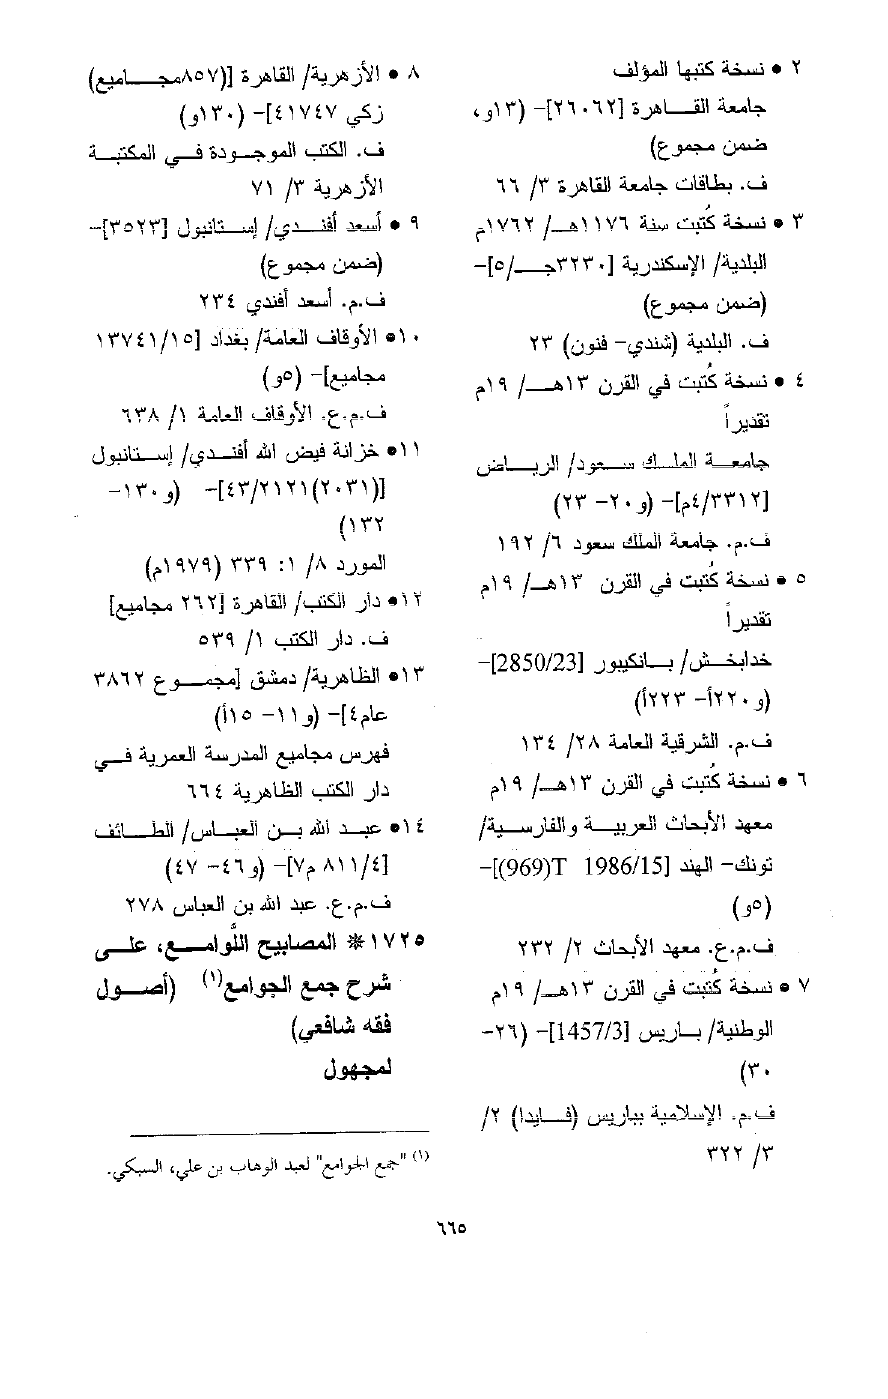 ٢ • نسخة كتبها المؤلف
جامعة القاهرة [٢٦٠٦٢]- (١٣و،
ضمن مجموع)
ف. بطاقات جامعة القاهرة ٣/ ٦٦
٣ • نسخة كُتبت سنة ١١٧٦هـ/ ١٧٦٢م
البلدية/ الإسكندرية [٣٢٣٠جـ/٥]-
(ضمن مجموع)
ف. البلدية (شندي- فنون) ٢٣
٤ • نسخة كُتبت في القرن ١٣هـ/ ١٩م
تقديراً
جامعة الملك سعود/ الرياض
[٤/٣٣١٢م]- (و٢٠- ٢٣)
ف.م. جامعة الملك سعود ٦/ ١٩٢
٥ • نسخة كُتبت في القرن ١٣هـ/ ١٩م
تقديراً
خدابخش/ بانكيبور [2850/23]-
(و٢٢٠أ- ٢٢٣أ)
ف.م. الشرقية العامة ٢٨/ ١٣٤
٦ • نسخة كُتبت في القرن ١٣هـ/ ١٩م
معهد الأبحاث العربية والفارسية/
تونك- الهند [1986/15 T(969)]-
(٥و)
ف.م.ع. معهد الأبحاث ٢/ ٢٣٢
٧ • نسخة كُتبت في القرن ١٣هـ/ ١٩م
الوطنية/ باريس [1457/3]- (٢٦-
٣٠)
ف.م. الإسلامية بباريس (فايدا) ٢/
٣/ ٣٢٢
٨ • الأزهرية/ القاهرة [(٨٥٧مجاميع)
زكي ٤١٧٤٧]- (١٣٠و)
ف. الكتب الموجودة في المكتبة
الأزهرية ٣/ ٧١
٩ • أسعد أفندي/ إستانبول [٣٥٢٣]-
(ضمن مجموع)
ف.م. أسعد أفندي ٢٣٤
١٠• الأوقاف العامة/ بغداد [١٣٧٤١/١٥
مجاميع]- (٥و)
ف.م.ع. الأوقاف العامة ١/ ٦٣٨
١١• خزانة فيض الله أفندي/ إستانبول
[(٢٠٣١)٤٣/٢١٢١]- (و١٣٠-
١٣٢)
المورد ٨/ ١: ٣٣٩ (١٩٧٩م)
١٢• دار الكتب/ القاهرة [٢٦٢ مجاميع]
ف. دار الكتب ١/ ٥٣٩
١٣• الظاهرية/ دمشق [مجموع ٣٨٦٢
عام٤]- (و١١- ١٥أ)
فهرس مجاميع المدرسة العمرية في
دار الكتب الظاهرية ٦٦٤
١٤• عبد الله بن العباس/ الطائف
[٨١١/٤ م٧]- (و٤٦- ٤٧)
ف.م.ع. عبد الله بن العباس ٢٧٨
١٧٢٥ * المصابيح اللَّوامع، على
شرح جمع الجوامع(١) (أصول
فقه شافعي)
لمجهول
(١) "جمع الجوامع" لعبد الوهاب بن علي، السبكي.
٦٦٥